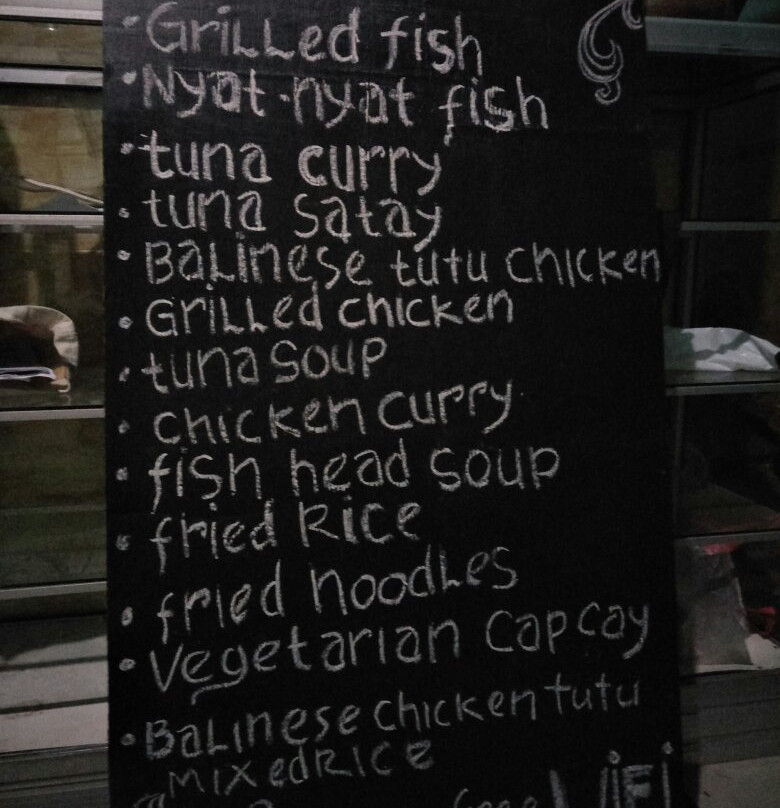 • Grilled fish
• Nyat-nyat fish
• tuna curry
• tuna satay
• Balinese tutu chicken
• Grilled chicken
• tuna soup
• chicken curry
• fish head soup
• fried Rice
• fried noodles
• Vegetarian capcay
• Balinese chicken tutu
mixed Rice
WiFi